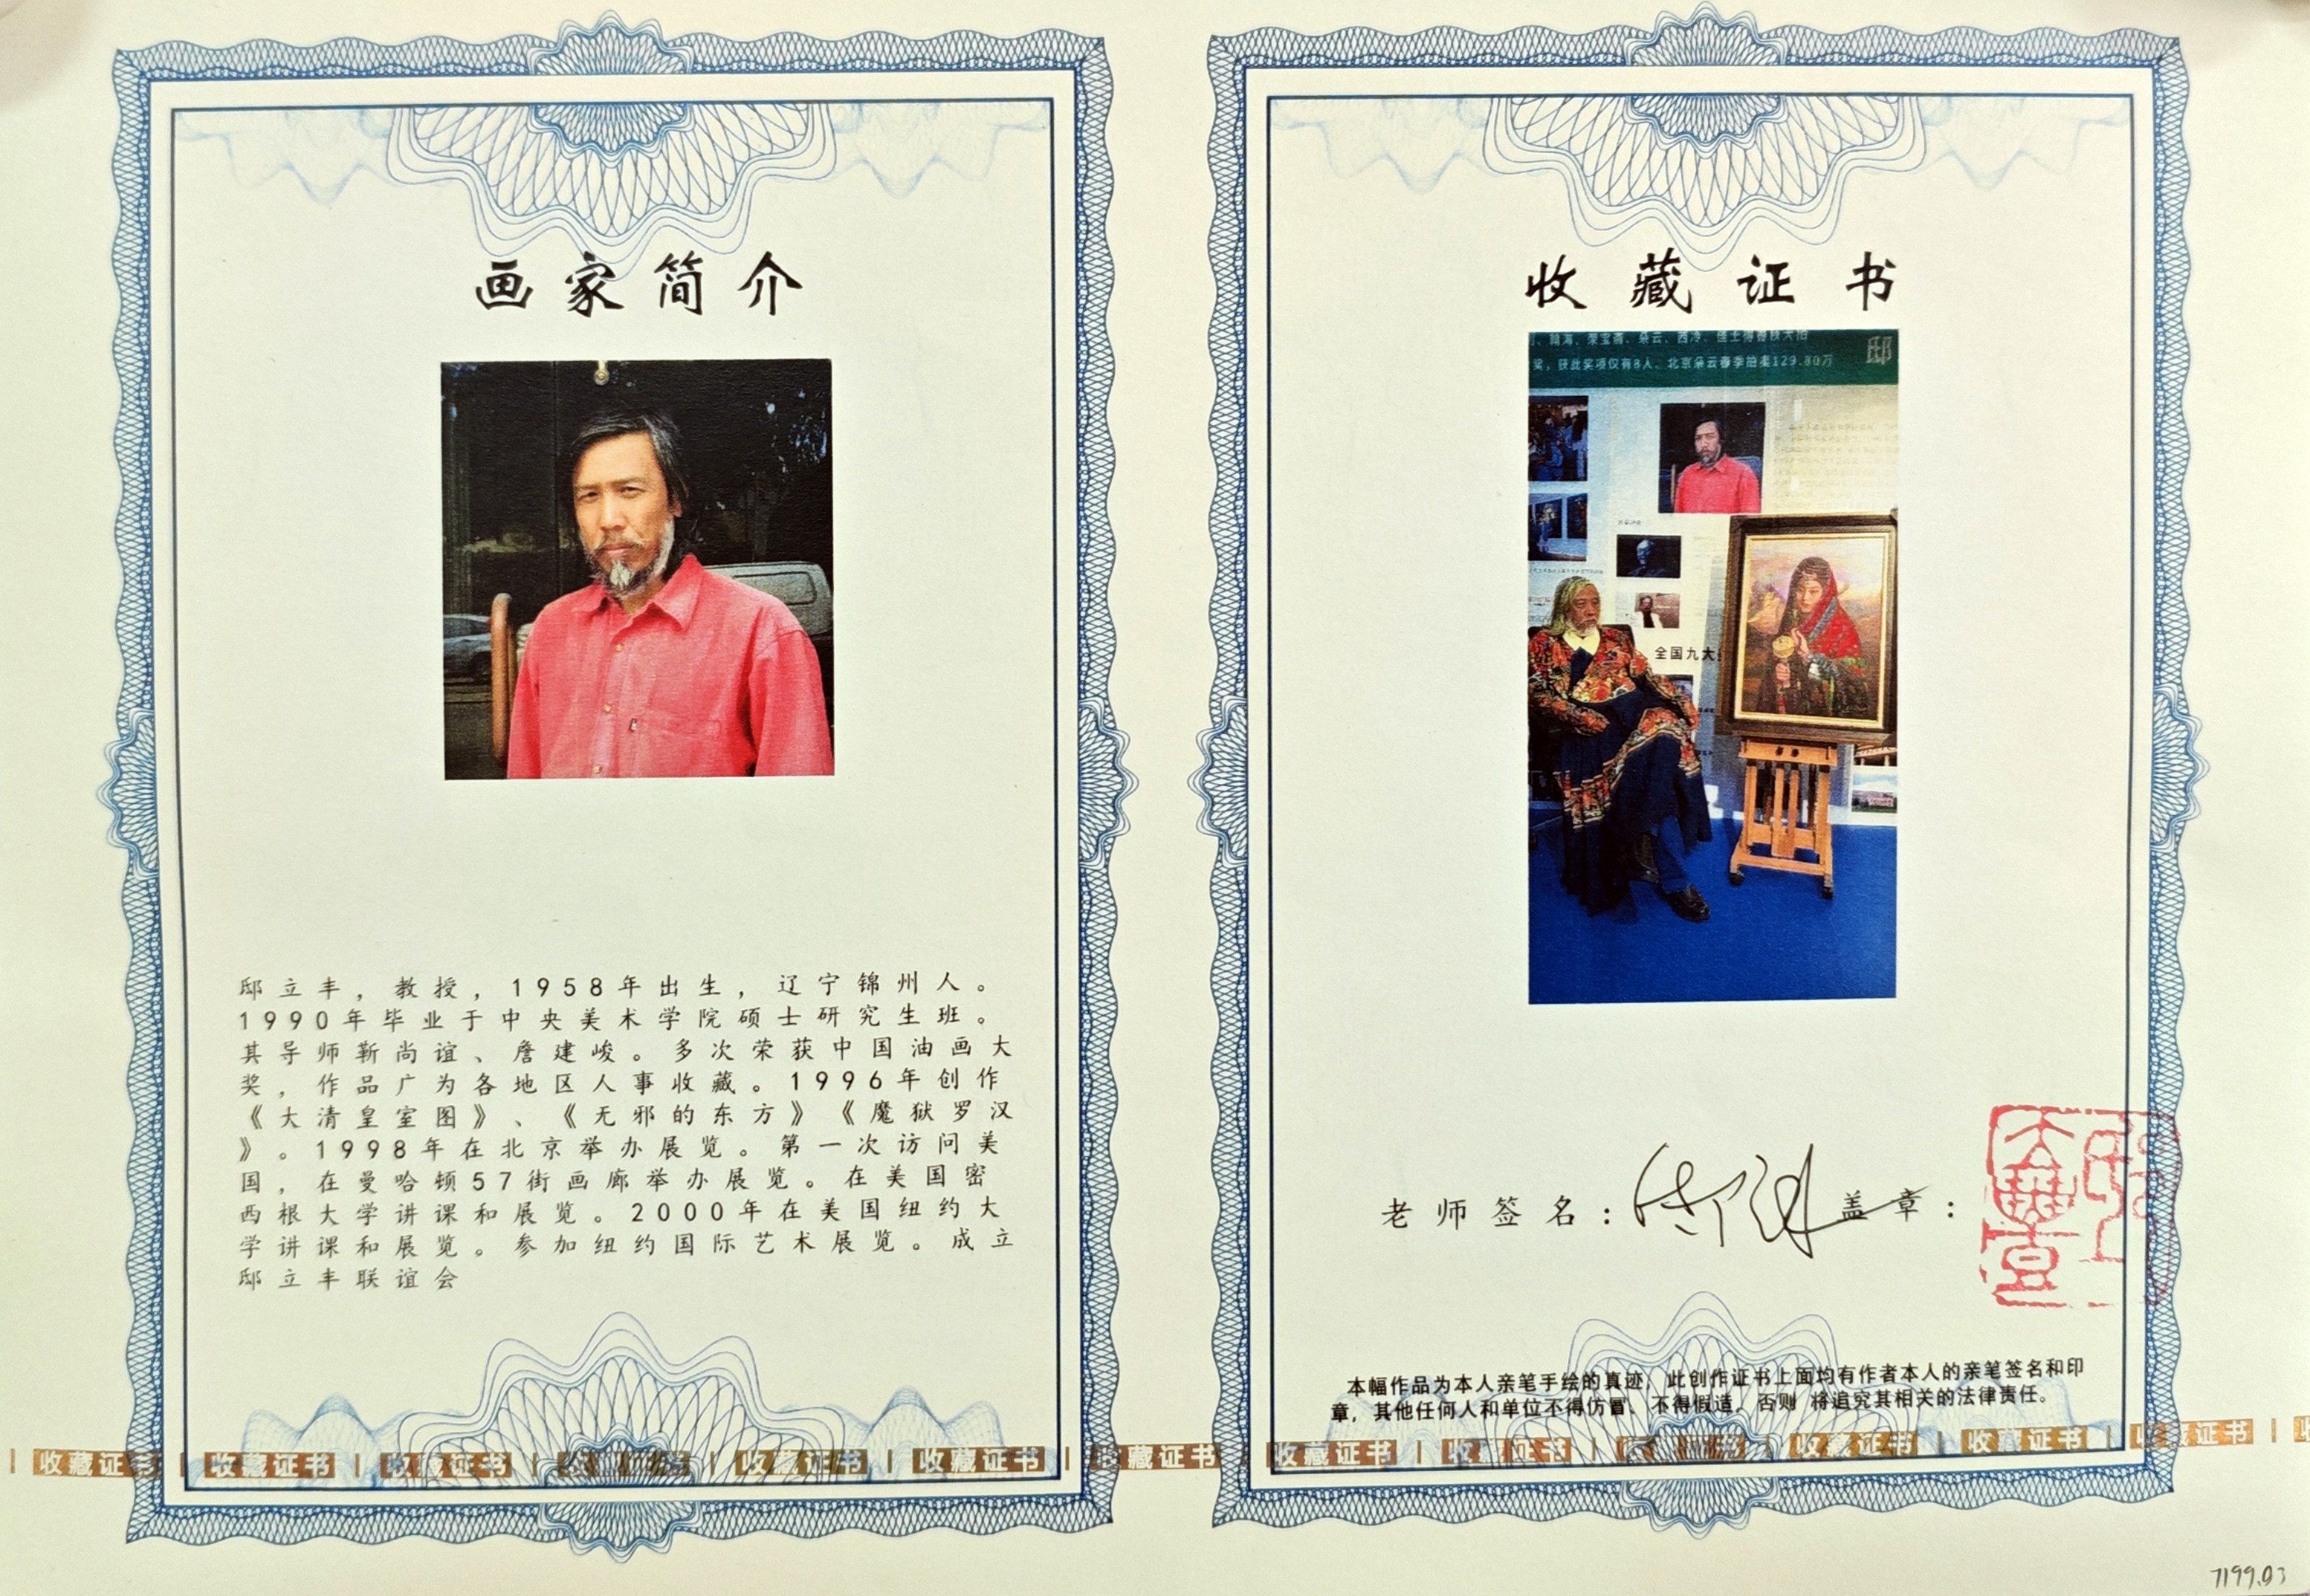 画家简介
邸立丰，教授，1958年出生，辽宁锦州人。
1990年毕业于中央美术学院硕士研究生班。
其导师靳尚谊、詹建峻。多次荣获中国油画大
奖，作品广为各地区人事收藏。1996年创作
《大清皇室图》、《无邪的东方》《魔狱罗汉
》。1998年在北京举办展览。第一次访问美
国，在曼哈顿57街画廊举办展览。在美国密
西根大学讲课和展览。2000年在美国纽约大
学讲课和展览。参加纽约国际艺术展览。成立
邸立丰联谊会
收藏证书
翰海、荣宝斋、朵云、西泠、
奖，获此奖项仅有8人、北京朵云春季拍卖129.80万
邸
全国九大
老师签名：
盖章：
本幅作品为本人亲笔手绘的真迹，此创作证书上面均有作者本人的亲笔签名和印
章，其他任何人和单位不得仿冒、不得假造，否则 将追究其相关的法律责任。
收藏证书 | 收藏证书 | 收藏证书 | 收藏证书 | 收藏证书 | 收藏证书 | 收藏证书 | 收藏证书 | 收藏证书 | 收藏证书 | 收藏证书 | 收藏证书 | 收藏证书
7199.03